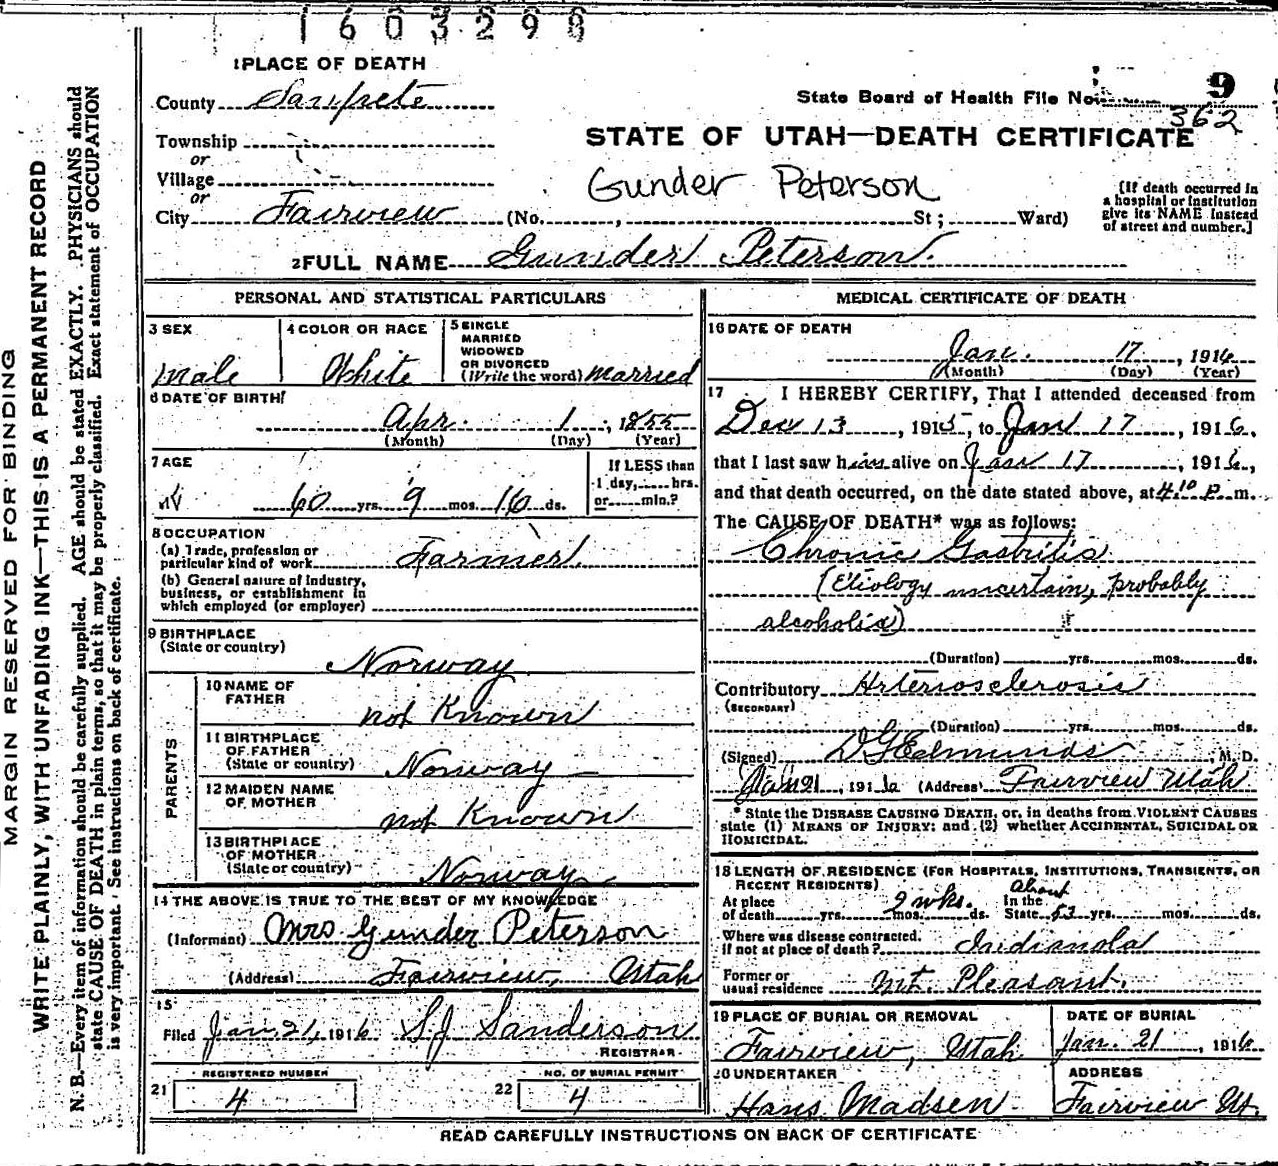 1603290
1 PLACE OF DEATH
County Sanpete
State Board of Health File No. 9
362
Township
or
Village
or
City Fairview (No. , St; Ward)
STATE OF UTAH—DEATH CERTIFICATE
Gunder Peterson
[If death occurred in
a hospital or institution
give its NAME instead
of street and number.]
2 FULL NAME Gunder Peterson.
PERSONAL AND STATISTICAL PARTICULARS
3 SEX
Male
4 COLOR OR RACE
White
5 SINGLE
MARRIED
WIDOWED
OR DIVORCED
(Write the word) married
6 DATE OF BIRTH
Apr. 1, 1855
(Month) (Day) (Year)
7 AGE
60 yrs. 9 mos. 16 ds.
If LESS than
1 day, hrs.
or min.?
8 OCCUPATION
(a) Trade, profession or
particular kind of work Farmer.
(b) General nature of industry,
business, or establishment in
which employed (or employer)
9 BIRTHPLACE
(State or country)
Norway
PARENTS
10 NAME OF
FATHER
not Known
11 BIRTHPLACE
OF FATHER
(State or country) Norway
12 MAIDEN NAME
OF MOTHER
not Known
13 BIRTHPLACE
OF MOTHER
(State or country) Norway
14 THE ABOVE IS TRUE TO THE BEST OF MY KNOWLEDGE
(Informant) Mrs Gunder Peterson
(Address) Fairview, Utah
15
Filed Jan. 21, 1916 S.J. Sanderson
REGISTRAR
REGISTERED NUMBER
21 4
NO. OF BURIAL PERMIT
22 4
MEDICAL CERTIFICATE OF DEATH
16 DATE OF DEATH
Jan. 17, 1916
(Month) (Day) (Year)
17 I HEREBY CERTIFY, That I attended deceased from
Dec 13, 1915, to Jan 17, 1916,
that I last saw him alive on Jan 17, 1916,
and that death occurred, on the date stated above, at 4:10 P. m.
The CAUSE OF DEATH* was as follows:
Chronic Gastritis
(Etiology uncertain, probably
alcoholic)
(Duration) yrs. mos. ds.
Contributory Arteriosclerosis
(SECONDARY)
(Duration) yrs. mos. ds.
(Signed) D G Edmunds, M. D.
Jan 21, 1916 (Address) Fairview Utah
* State the DISEASE CAUSING DEATH, or, in deaths from VIOLENT CAUSES
state (1) MEANS OF INJURY; and (2) whether ACCIDENTAL, SUICIDAL OR
HOMICIDAL.
18 LENGTH OF RESIDENCE (FOR HOSPITALS, INSTITUTIONS, TRANSIENTS, OR
RECENT RESIDENTS)
At place
of death yrs. 2 wks. mos. ds.
About
In the
State 53 yrs. mos. ds.
Where was disease contracted,
if not at place of death? Indianola
Former or
usual residence Mt. Pleasant.
19 PLACE OF BURIAL OR REMOVAL
Fairview, Utah
DATE OF BURIAL
Jan. 21, 1916
20 UNDERTAKER
Hans Madsen
ADDRESS
Fairview Ut.
READ CAREFULLY INSTRUCTIONS ON BACK OF CERTIFICATE
MARGIN RESERVED FOR BINDING
WRITE PLAINLY, WITH UNFADING INK—THIS IS A PERMANENT RECORD
N. B.—Every item of information should be carefully supplied. AGE should be stated EXACTLY. PHYSICIANS should
state CAUSE OF DEATH in plain terms, so that it may be properly classified. Exact statement of OCCUPATION
is very important. See instructions on back of certificate.